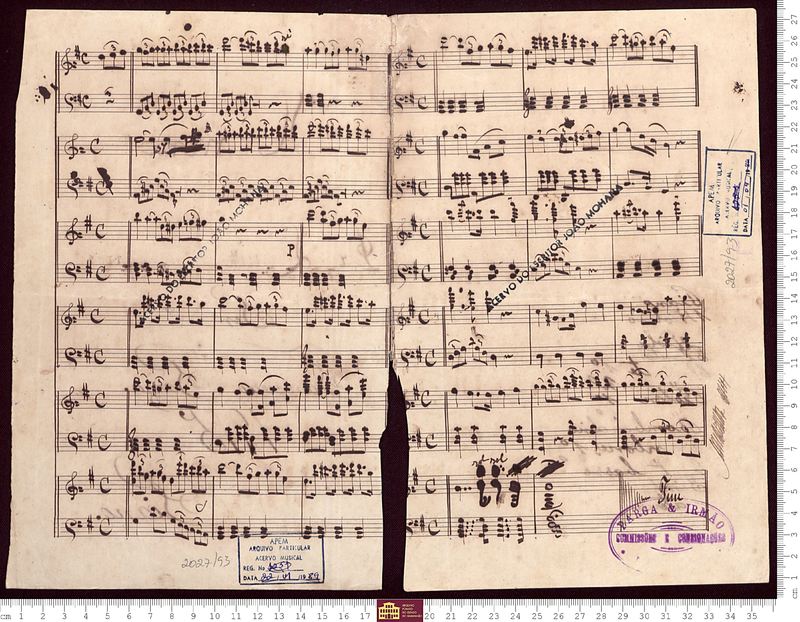 P
ACERVO DO SENHOR JOÃO MOHANA
ACERVO DO SENHOR JOÃO MOHANA
APEM
ARQUIVO PARTICULAR
ACERVO MUSICAL
REG. No
DATA 01, 04, 19
2027/93
Fim
BRAGA & IRMÃO
COMMISSÕES E CONSIGNAÇÕES
2027/93
APEM
ARQUIVO PARTICULAR
ACERVO MUSICAL
REG. No
DATA 22, 01, 1989
cm 1 2 3 4 5 6 7 8 9 10 11 12 13 14 15 16 17 20 21 22 23 24 25 26 27 28 29 30 31 32 33 34 35
cm 1 2 3 4 5 6 7 8 9 10 11 12 13 14 15 16 17 18 19 20 21 22 23 24 25 26 27